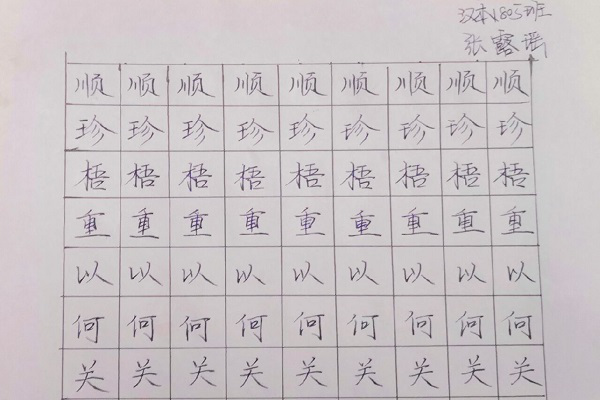 汉本1805班
张露瑶
顺 顺 顺 顺 顺 顺 顺 顺 顺
珍 珍 珍 珍 珍 珍 珍 珍 珍
梧 梧 梧 梧 梧 梧 梧 梧 梧
重 重 重 重 重 重 重 重 重
以 以 以 以 以 以 以 以 以
何 何 何 何 何 何 何 何 何
关 关 关 关 关 关 关 关 关